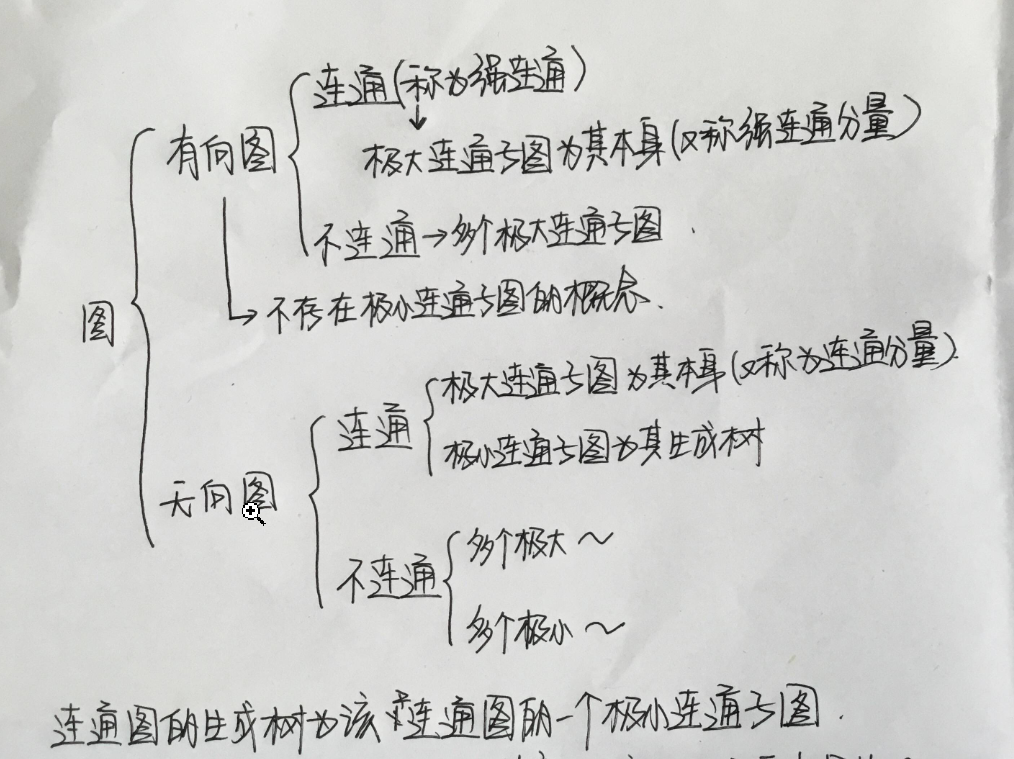 连通(称为强连通)
有向图
极大连通子图为其本身(又称强连通分量)
不连通→多个极大连通子图.
不存在极小连通子图的概念.
图
极大连通子图为其本身(又称为连通分量).
连通
极小连通子图为其生成树
无向图
多个极大~
不连通
多个极小~
连通图的生成树为该连通图的一个极小连通子图.